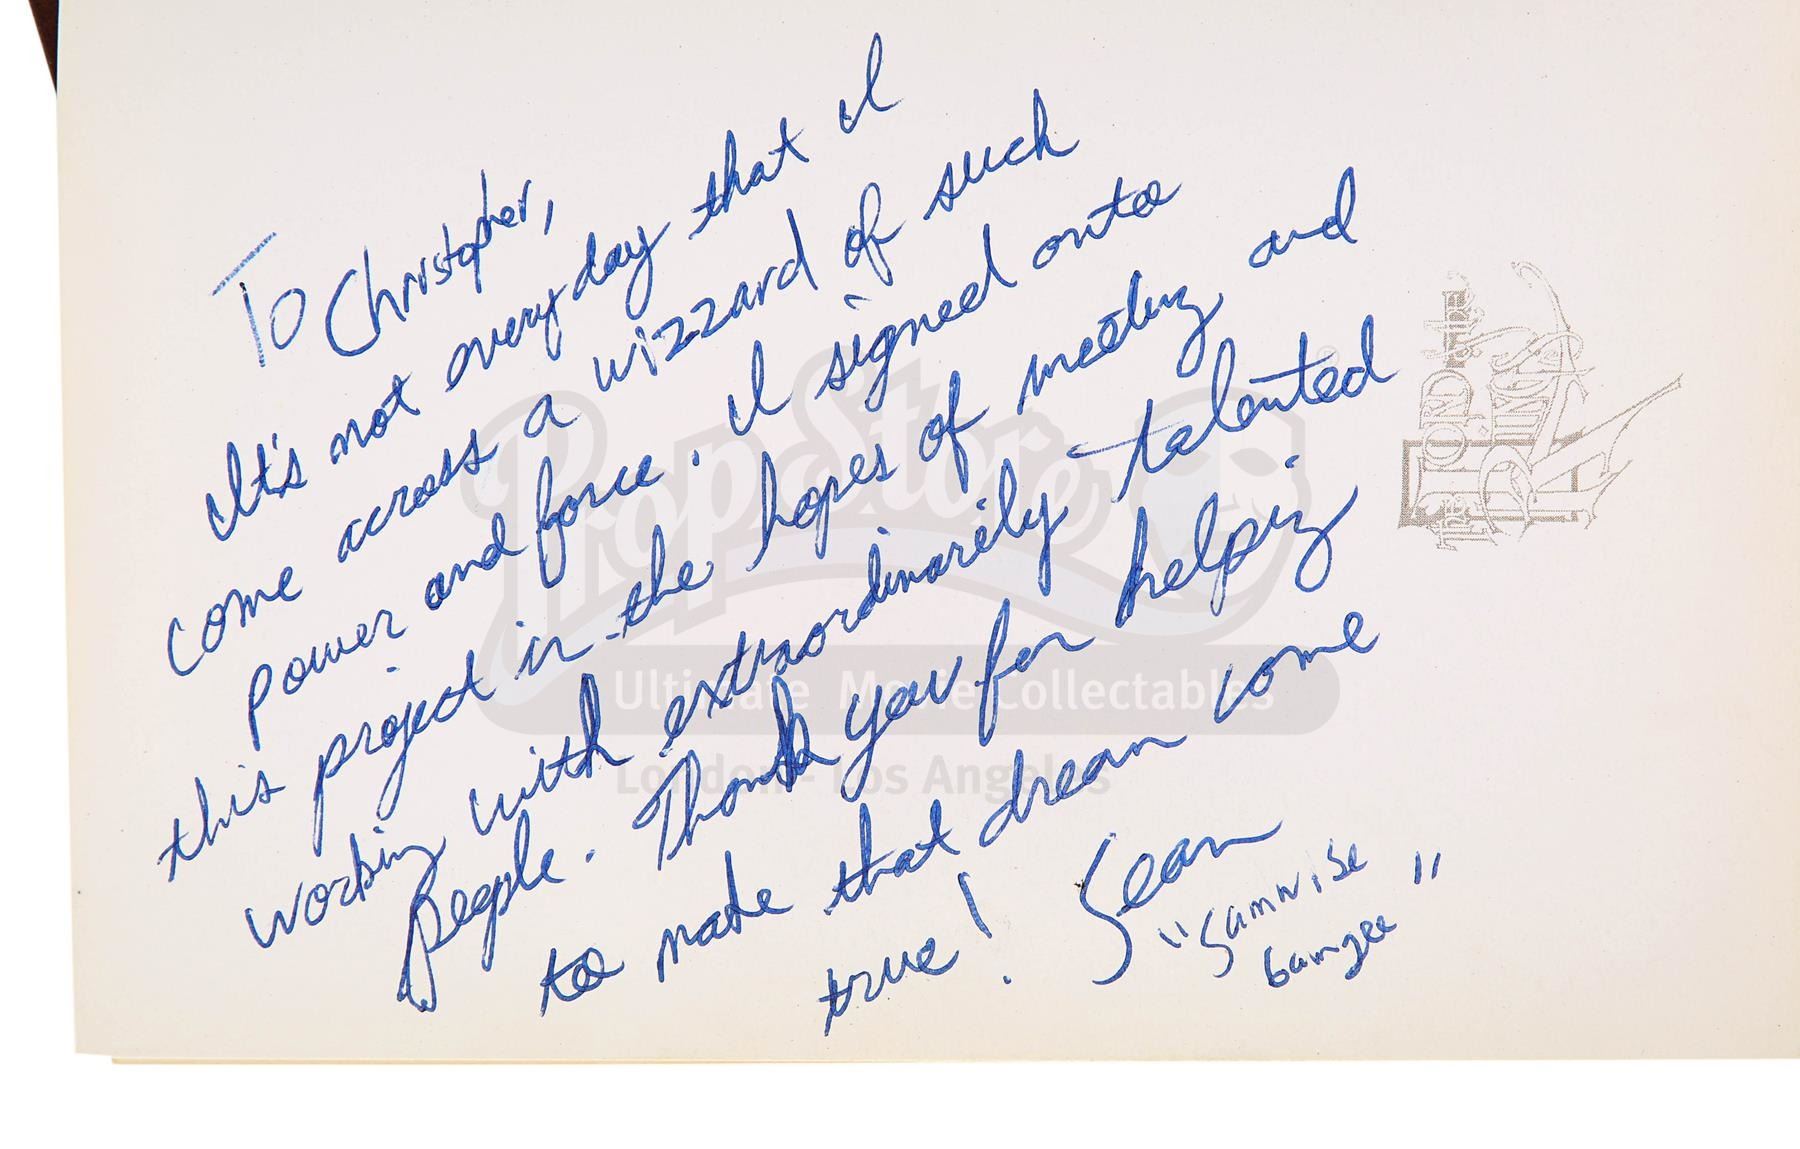 To Christopher,
It's not everyday that I
come across a wizzard of such
power and force. I signed onto
this project in the hopes of meeting and
working with extraordinarily talented
people. Thank you for helping
to make that dream come
true! Sean
"Samwise
Gamgee"
THE LORD OF THE RINGS
PropStore
®
Ultimate Movie Collectables
London - Los Angeles